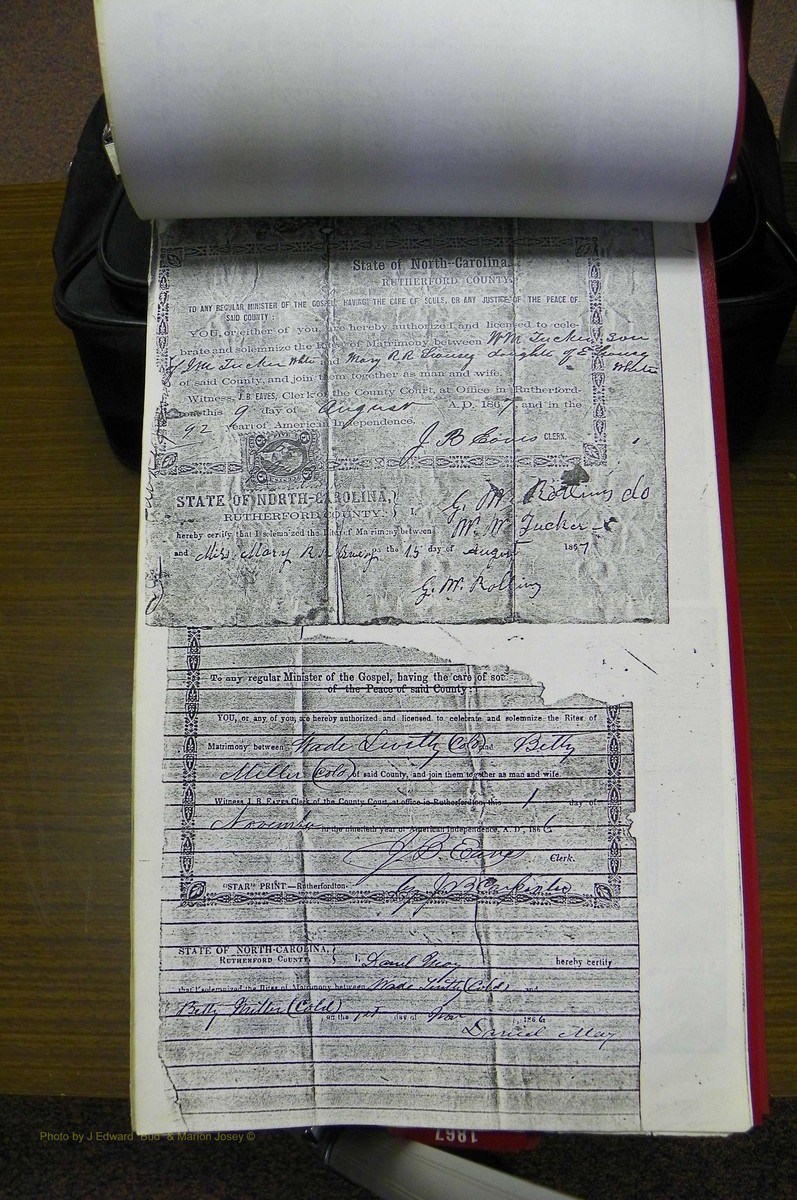 State of North-Carolina.
RUTHERFORD COUNTY.
TO ANY REGULAR MINISTER OF THE GOSPEL, HAVING THE CARE OF SOULS, OR ANY JUSTICE OF THE PEACE OF
SAID COUNTY:
YOU, or either of you, are hereby authorized and licensed to cele-
brate and solemnize the Rites of Matrimony between W M Tucker son
of J M Tucker White and Mary R R daughter of E White
of said County, and join them together as man and wife.
Witness, J. B. EAVES, Clerk of the County Court, at Office in Rutherford-
this 9 day of August A. D. 1867, and in the
92 year of American Independence.
J. B. Eaves CLERK.
STATE OF NORTH-CAROLINA,
RUTHERFORD COUNTY. I, G. W. Rollins do
hereby certify that I solemnized the Rites of Matrimony between W. M. Tucker
and Mrs. Mary R. R. on the 15 day of August 1867
G. W. Rollins
To any regular Minister of the Gospel, having the care of
of the Peace of said County:
YOU, or any of you, are hereby authorized and licensed to celebrate and solemnize the Rites of
Matrimony between Wade (Cold) and Betty
Miller (Cold) of said County, and join them together as man and wife.
Witness J. B. EAVES Clerk of the County Court, at office in Rutherfordton, this 1 day of
November in the ninetieth year of American Independence, A. D., 1866
J. B. Eaves Clerk.
"STAR" PRINT—Rutherfordton. by J. B.
STATE OF NORTH-CAROLINA,
RUTHERFORD COUNTY. I, Daniel May hereby certify
that I solemnized the Rites of Matrimony between Wade (Cold) and
Betty Miller (Cold) on the 1st day of Nov 1866
Daniel May
1867
Photo by J Edward "Bud" & Marion Josey ©